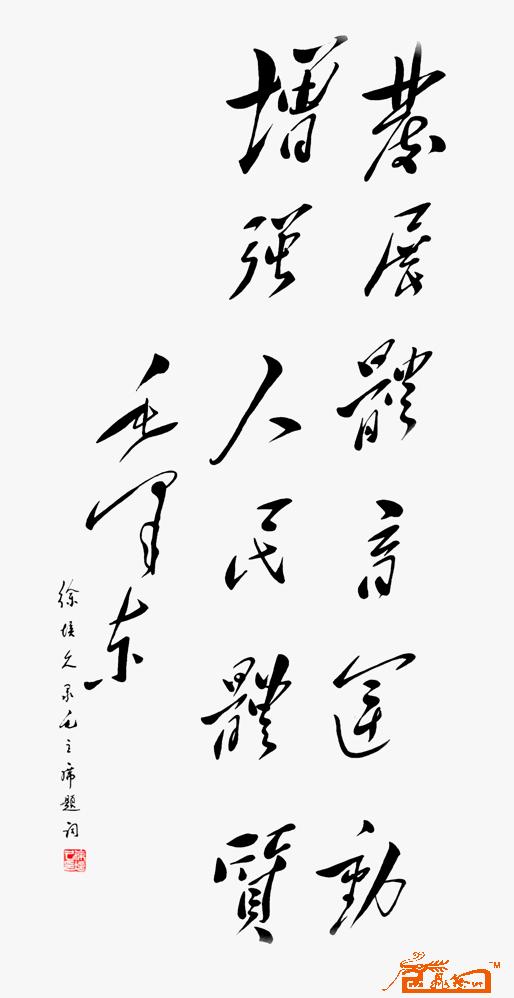 發展體育運動
增强人民體質
毛澤东
徐培久录毛主席題词
TM